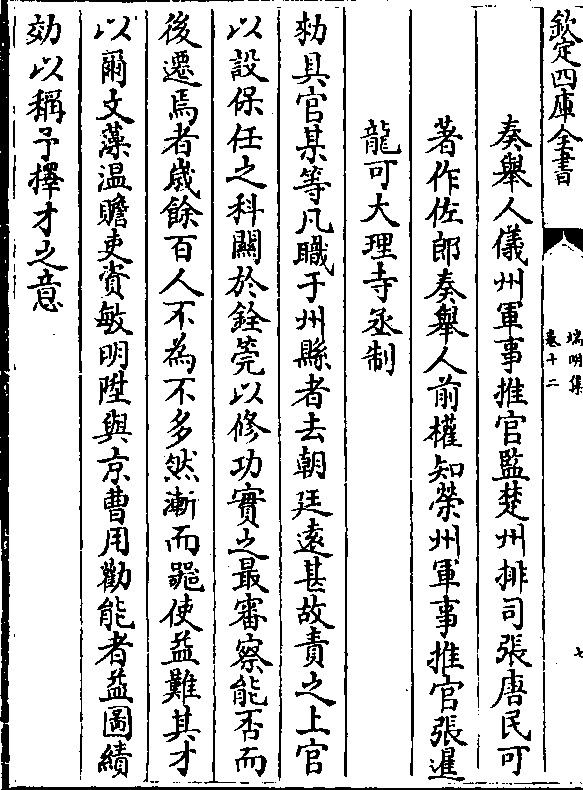 欽定四庫全書
端明集
卷十二
七
奏舉人儀州軍事推官監楚州排司張唐民可
著作佐郎奏舉人前權知榮州軍事推官張遲
龍可大理寺丞制
勑具官某等凡職于州縣者去朝廷遠甚故責之上官
以設保任之科關於銓筦以修功實之最審察能否而
後遷焉者歲餘百人不為不多然漸而
使益難其才
以爾文藻温贍吏資敏明陞與京曹用勸能者益圖績
効以稱予擇才之意